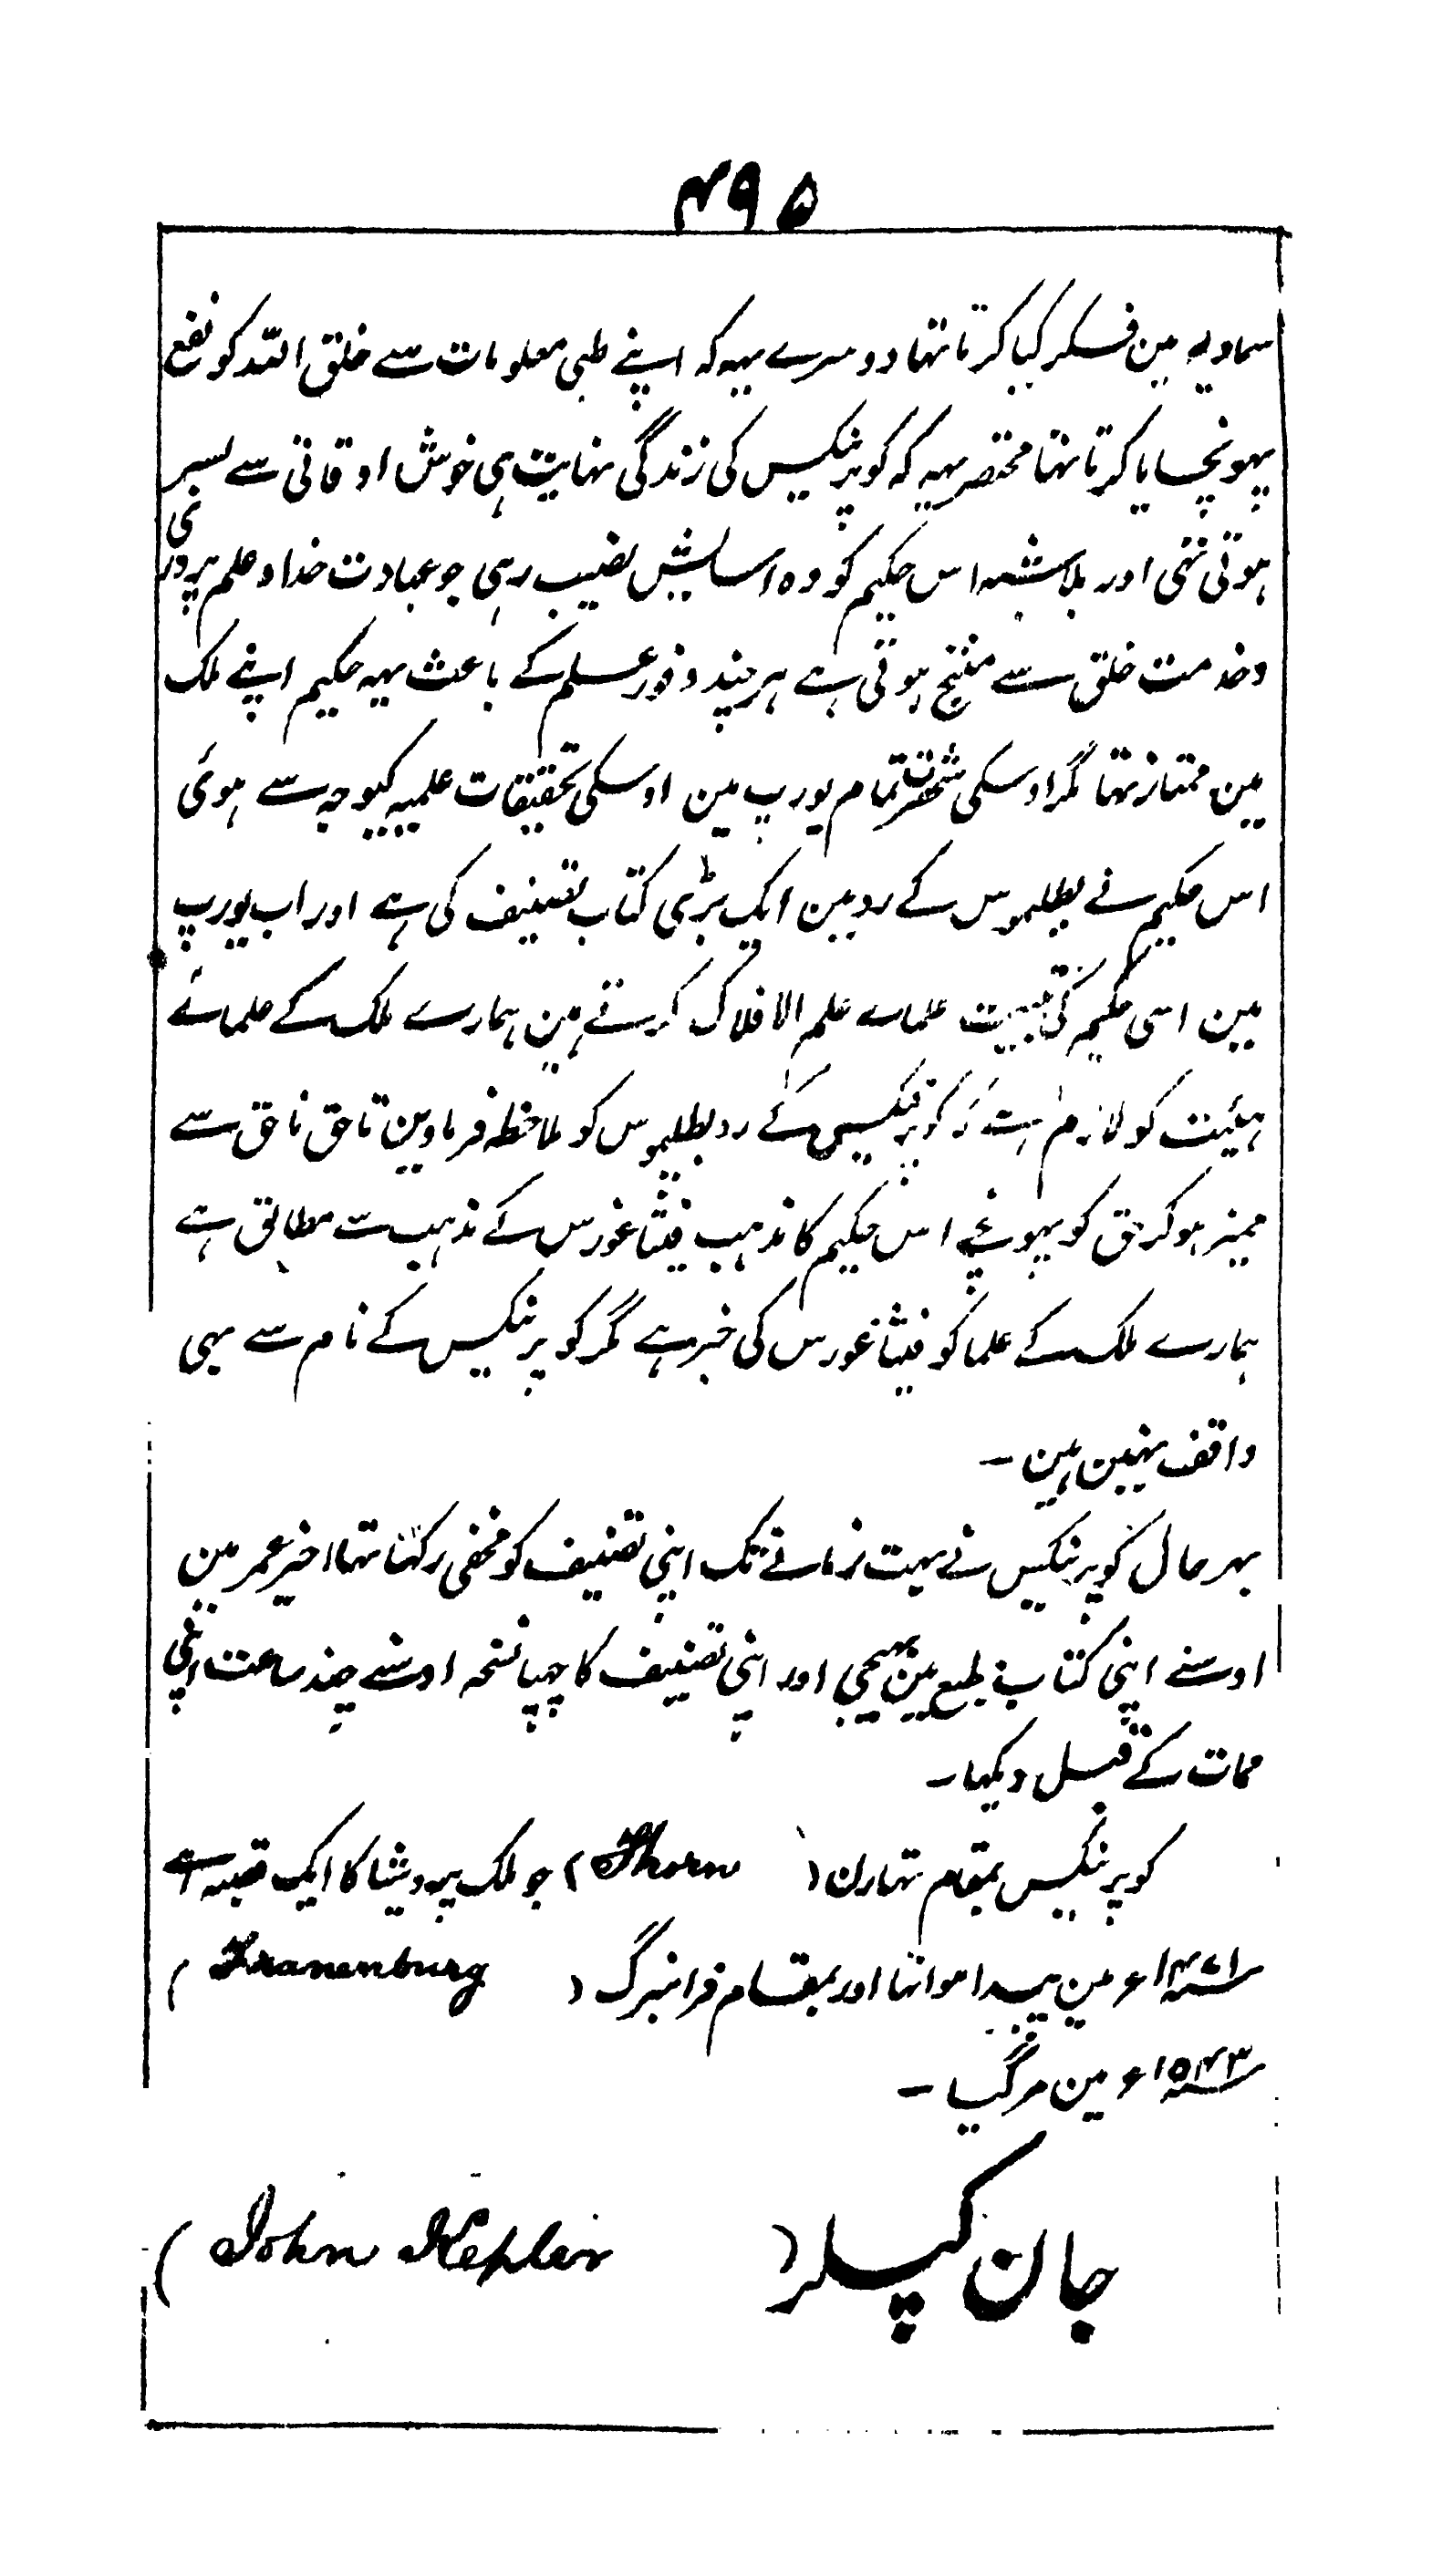 ۴۹۵
سماویہ مین فسکر کیا کرتا تہا دوسرے یہہ کہ اپنے طبی معلومات سے خلق اللہ کو نفع
پہونچایا کرتا تہا مختصر یہہ کہ کوپرنیکس کی زندگی نہایت ہی خوش اوقاتی سے بسر
ہوتی تہی اور بلاشبہہ اس حکیم کو وہ اسایش نصیب رہی جو عبادت خدا و علم پروری
و خدمت خلق سے منتج ہوتی ہے ہر چند وفور علم کے باعث یہہ حکیم اپنے ملک
مین ممتاز تہا مگر اوسکی شہرت تمام یورپ مین اوسکی تحقیقات علمیہ کیوجہ سے ہوئی
اس حکیم نے بطلیموس کے رد مین ایک بڑی کتاب تصنیف کی ہے اور اب یورپ
مین اسی حکیم کی تبعیت علماے علم الافلاک کرتے ہین ہمارے ملک کے علمائے
ہیئت کو لازم ہے کہ کوپرنیکس کے رد بطلیموس کو ملاحظہ فرماوین تا حق ناحق سے
ممیز ہو کر حق کو پہونچے اس حکیم کا مذہب فیثاغورس کے مذہب سے مطابق ہے
ہمارے ملک کے علما کو فیثاغورس کی خبر ہے مگر کوپرنیکس کے نام سے بہی
واقف نہین ہین ۔
بہر حال کوپرنیکس نے بہت زمانے تک اپنی تصنیف کو مخفی رکہا تہا اخیر عمر مین
اوسنے اپنی کتاب طبع مین بہیجی اور اپنی تصنیف کا چہپا نسخہ اوسنے چند ساعت اپنی
ممات کے قبل دیکہا ۔
کوپرنیکس بمقام تہارن ( Thorn ) جو ملک پروشیا کا ایک قصبہ ہے
سنہ ۱۴۷۱ء مین پیدا ہوا تہا اور بمقام فرانبرگ ( Franenburg )
سنہ ۱۵۴۳ء مین مر گیا ۔
جان کپلر ( John Kepler )